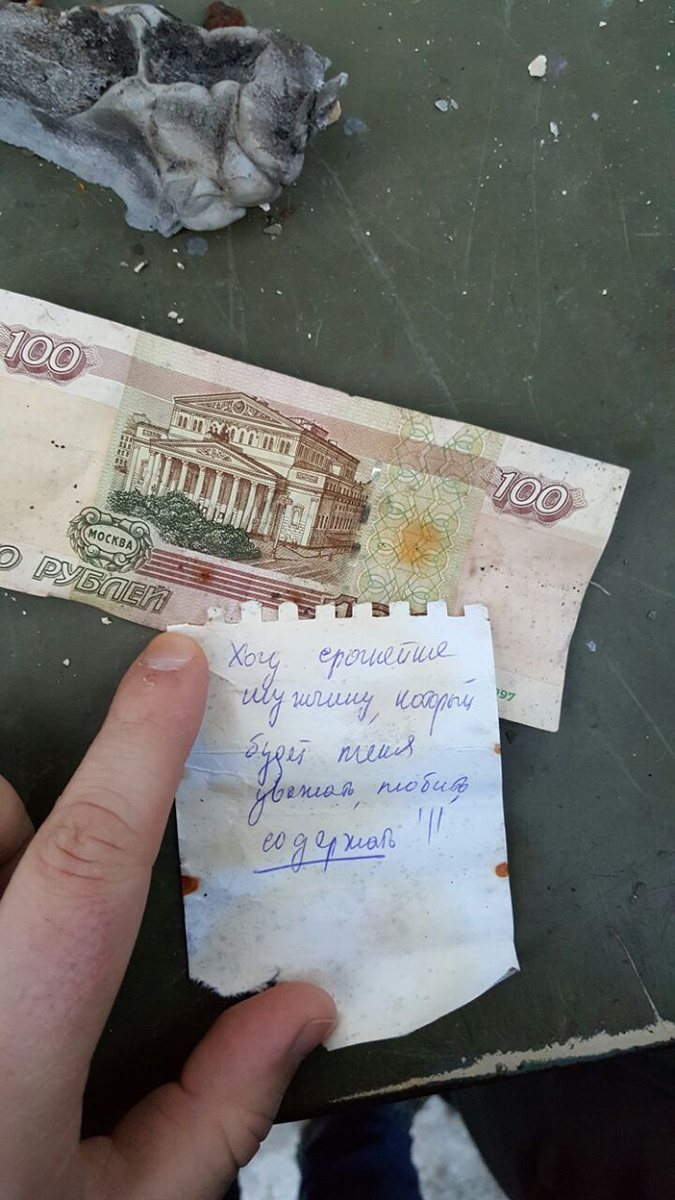 100
100
МОСКВА
О РУБЛЕЙ
997
Хочу срочнейше
мужчину, который
будет меня
уважать, любить,
содержать "!!"